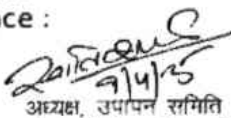 nce :
9/4/25
अध्यक्ष, उपापन समिति